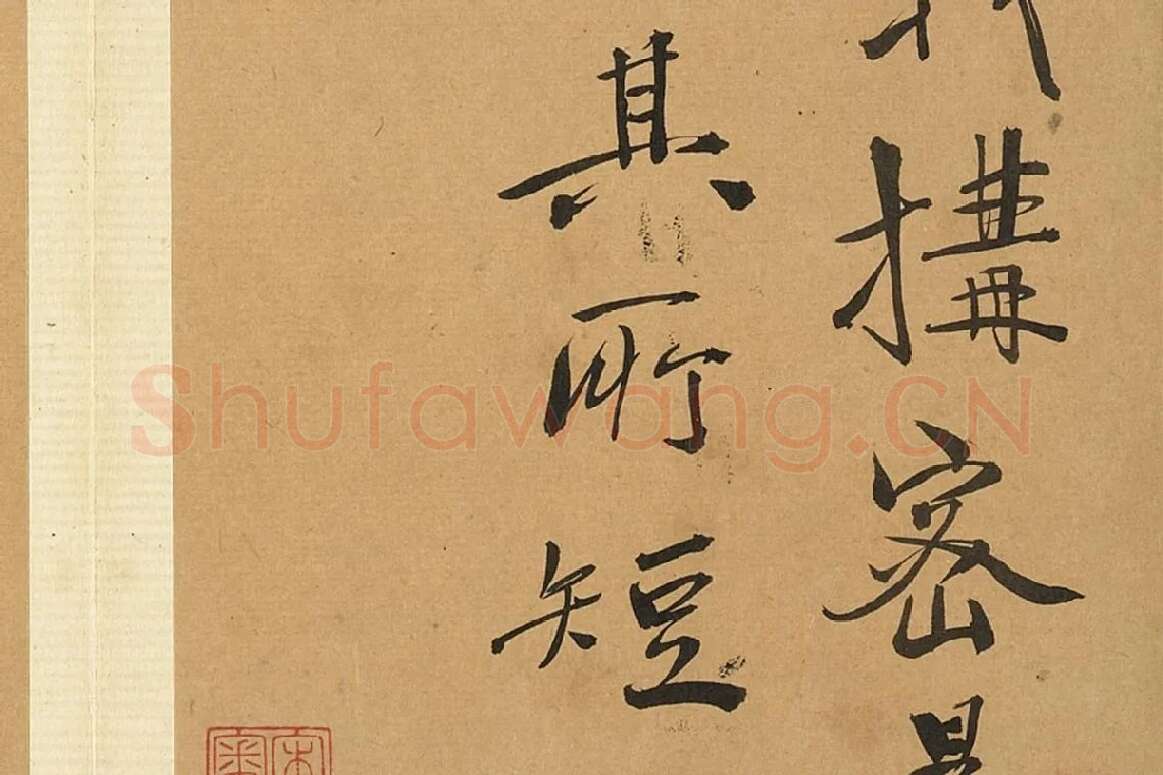 搆密
其所短
Shufawang.CN